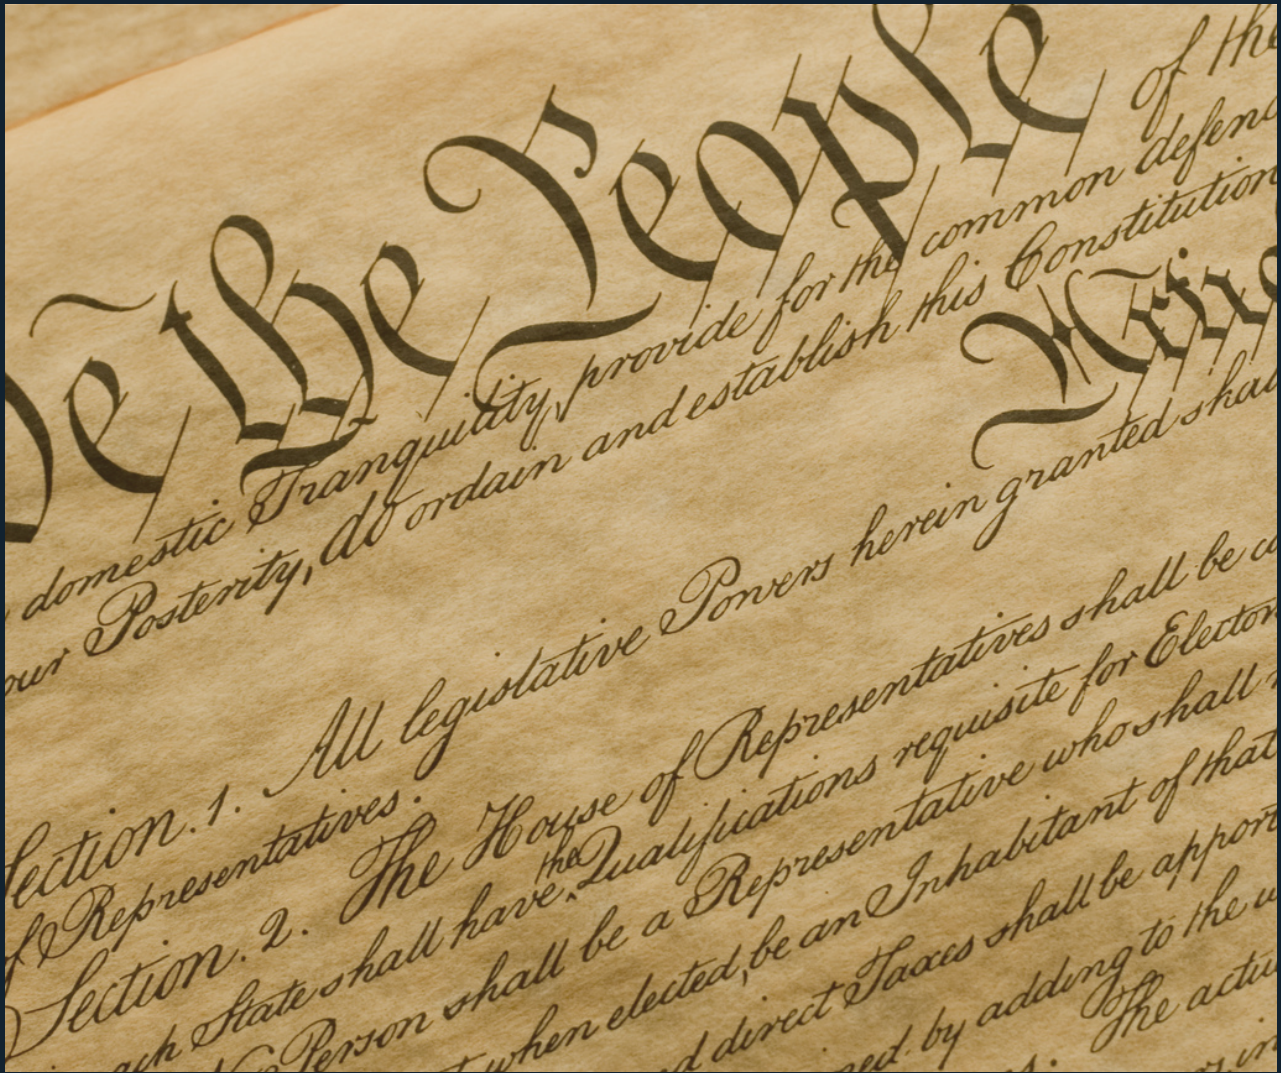 We the People of the
domestic Tranquility, provide for the common defenc
our Posterity, do ordain and establish this Constitution
Artic
Section. 1. All legislative Powers herein granted shal
of Representatives.
Section. 2. The House of Representatives shall be c
ach State shall have the Qualifications requisite for Elector
No Person shall be a Representative who shall n
when elected, be an Inhabitant of that
d direct Taxes shall be apport
ned by adding to the w
s. The actu